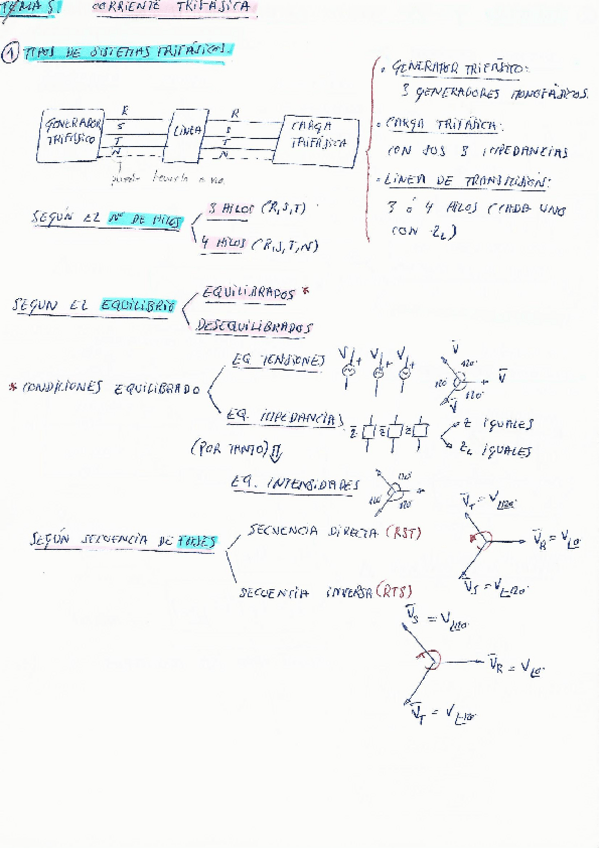 TEMA 5. CORRIENTE TRIFÁSICA
① TIPOS DE SISTEMAS TRIFÁSICOS.
GENERADOR TRIFÁSICO
R S T N
LÍNEA
R S T N
CARGA TRIFÁSICA
puede tenerla o no
· GENERADOR TRIFÁSICO:
3 GENERADORES MONOFÁSICOS.
· CARGA TRIFÁSICA:
CON SUS 3 IMPEDANCIAS
· LÍNEA DE TRANSMISIÓN:
3 ó 4 HILOS (CADA UNO
CON ZL)
SEGÚN EL Nº DE HILOS
3 HILOS (R,S,T)
4 HILOS (R,S,T,N)
SEGÚN EL EQUILIBRIO
EQUILIBRADOS *
DESEQUILIBRADOS
* CONDICIONES EQUILIBRADO
EQ TENSIONES
V + V + V +
V̅ 120° 120° 120° V̅ V̅
EQ. IMPEDANCIAS
Z̅ Z̅ Z̅
Z IGUALES
ZL IGUALES
(POR TANTO) ⇓
EQ. INTENSIDADES
120° 120° 120°
SEGÚN SECUENCIA DE FASES
SECUENCIA DIRECTA (RST)
V̅T = V∠120°
V̅R = V∠0°
V̅S = V∠-120°
SECUENCIA INVERSA (RTS)
V̅S = V∠120°
V̅R = V∠0°
V̅T = V∠-120°